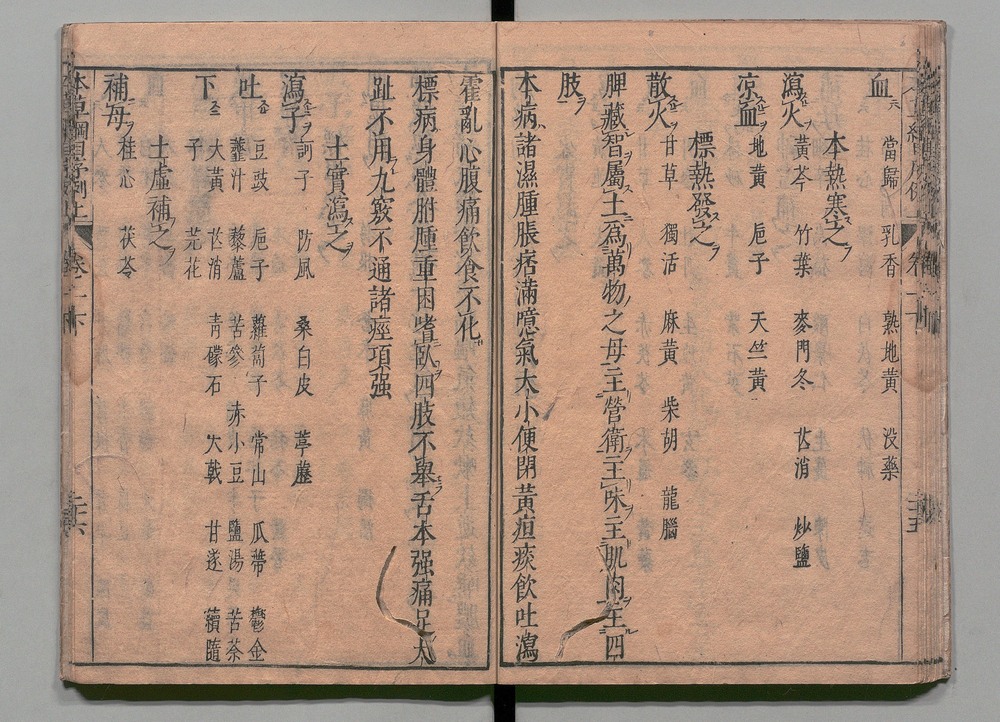 血 當歸 乳香 熟地黃 没藥
本熱寒之
瀉火 黃芩 竹葉 麥門冬 芒消 炒鹽
凉血 地黃 巵子 天竺黃
標熱發之
散火 甘草 獨活 麻黃 柴胡 龍腦
脾藏智屬土爲萬物之母主營衛主味主肌肉主四
肢
本病諸濕腫脹痞滿噫氣大小便閉黃疸痰飲吐瀉
霍亂心腹痛飲食不化
標病身體胕腫重困嗜臥四肢不舉舌本强痛足大
趾不用九竅不通諸痙項强
土實瀉之
瀉子 訶子 防風 桑白皮 葶藶
吐 豆豉 巵子 蘿蔔子 常山 瓜蒂 鬱金
虀汁 藜蘆 苦參 赤小豆 鹽湯 苦茶
下 大黃 芒消 青礞石 大戟 甘遂 續隨
子 芫花
土虛補之
補母 桂心 茯苓
本草綱目序例上 卷之一下 二十六